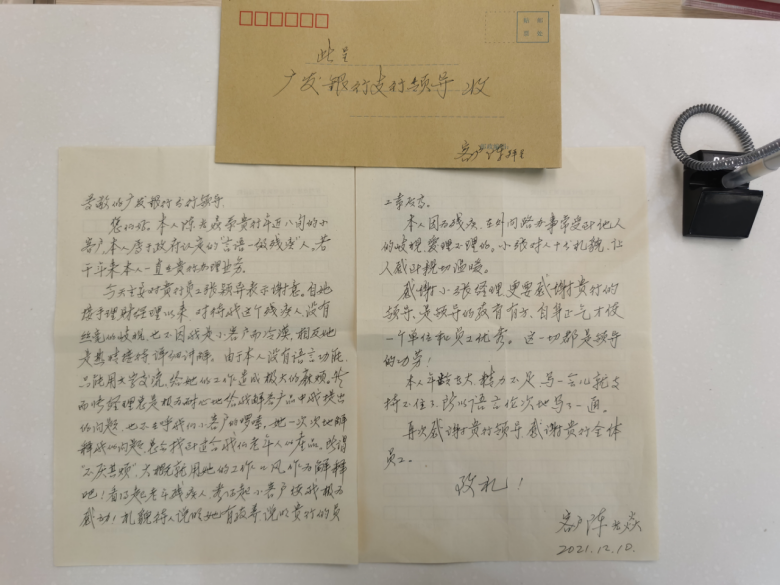 此呈
广发银行支行领导 收
客户 陈
尊敬的广发银行支行领导.
您们好. 本人陈 系贵行年近八旬的小
客户. 本人属于政府认定的"言语一级残疾"人. 若
干年来本人一直在贵行办理业务.
今天主要对贵行员工张 表示谢意. 自她
接手理财经理以来 对待我这个残疾人 没有
丝毫的歧视. 也不因我是小客户而冷漠, 相反她
是热情接待 详细讲解. 由于本人没有语言功能,
只能用文字交流, 给她的工作造成极大的麻烦. 然
而 经理总是极为耐心地给我解答产品中我提出
的问题, 也不 我们小客户的啰嗦. 她一次次地解
释我的问题, 总会找出适合我们老年人的产品. 所谓
"不厌其烦", 大概能用她的工作小风作为解释
吧! 看得起老年残疾人 看得起小客户使我极为
感动! 礼貌待人说明她有 说明贵行的员
工 .
本人因为残疾. 在外间路办事常受到他人
的歧视. 爱理不理的. 小张对人十分礼貌, 让
人感到亲切温暖.
感谢小张经理 更要感谢贵行的
领导. 是领导的教育有方, 自身正气才使
一个单位和员工优秀. 这一切都是领导
的功劳!
本人年龄 大 精力不足. 写一会儿就支
持不住了. 所以语言 次地写了一通.
再次感谢贵行领导. 感谢贵行全体
员工.
致礼!
客户 陈
2021.12.10.